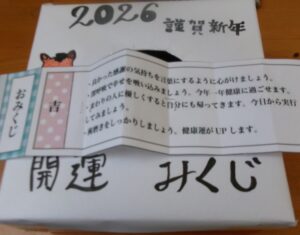 2026
謹賀新年
おみくじ
吉
・良かった感謝の気持ちを言葉にするように心がけましょう。
・深呼吸で幸せを吸い込みましょう。今年一年健康に過ごせます。
・まわりの人に優しくすると自分にも帰ってきます。今日から実行してみましょう。
・歯磨きをしっかりしましょう。健康運がUPします。
開運 みくじ